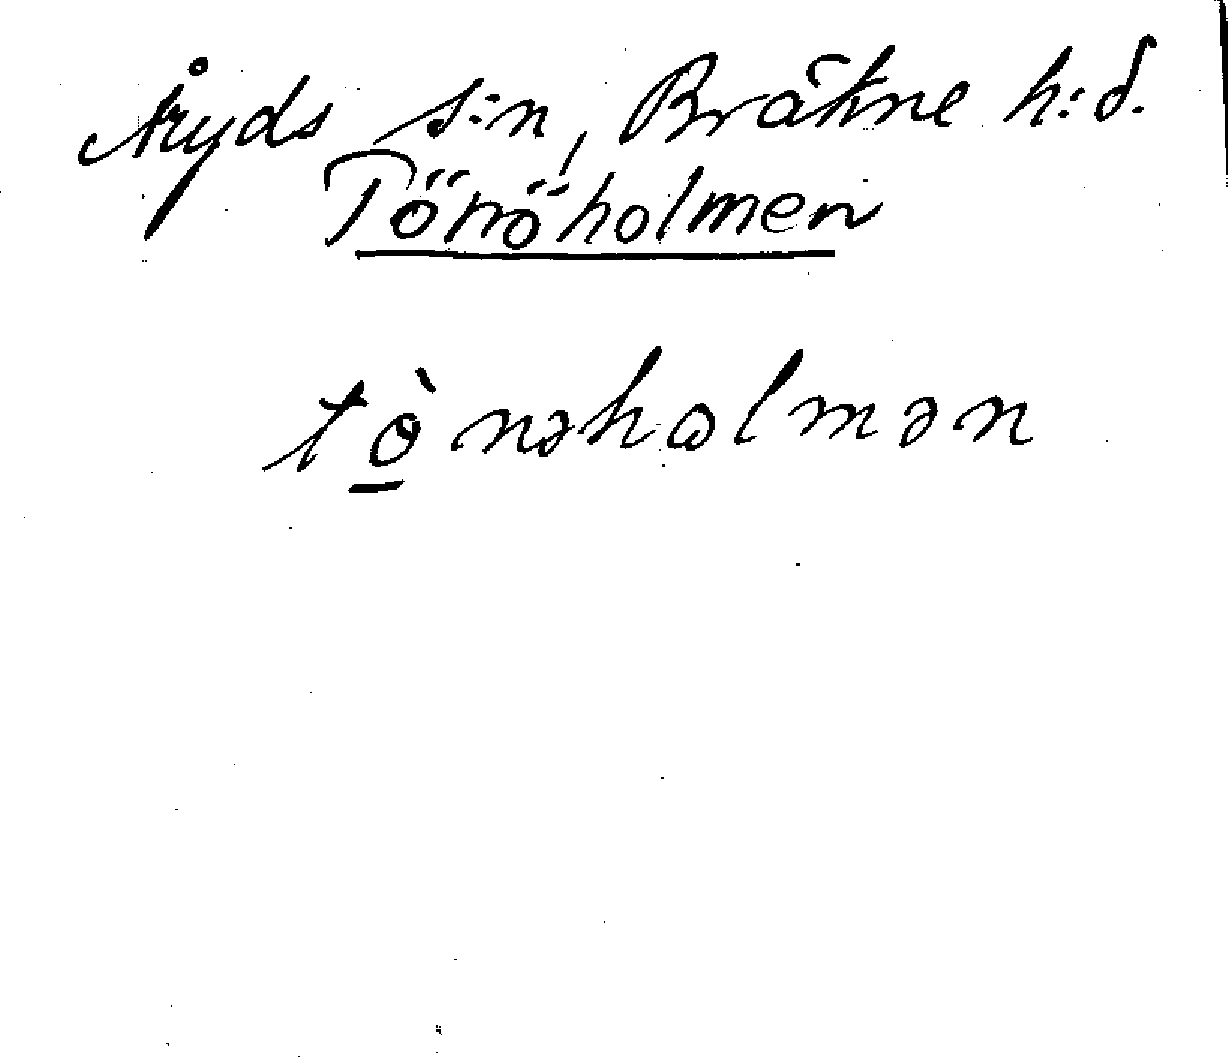 Åryds s:n, Bräkne h:d.
Tönöholmen
tò̱nəhɷlmən